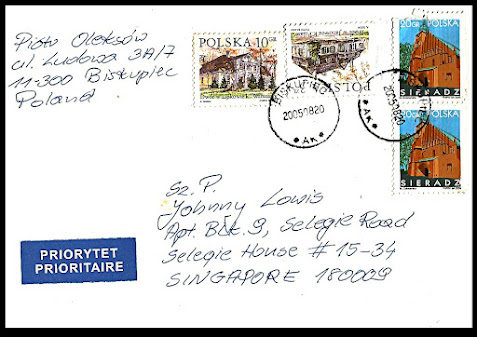 Piotr Oleksów
ul. Ludowa 3A/7
11-300 Biskupiec
Poland
POLSKA 10GR
POLSKA
20GR POLSKA
SIERADZ
20GR POLSKA
SIERADZ
*AK*
*AK*
Sz. P.
Johnny Lowis
Apt. Blk. 9, Selegie Road
Selegie House # 15-34
SINGAPORE 180009
PRIORYTET
PRIORITAIRE